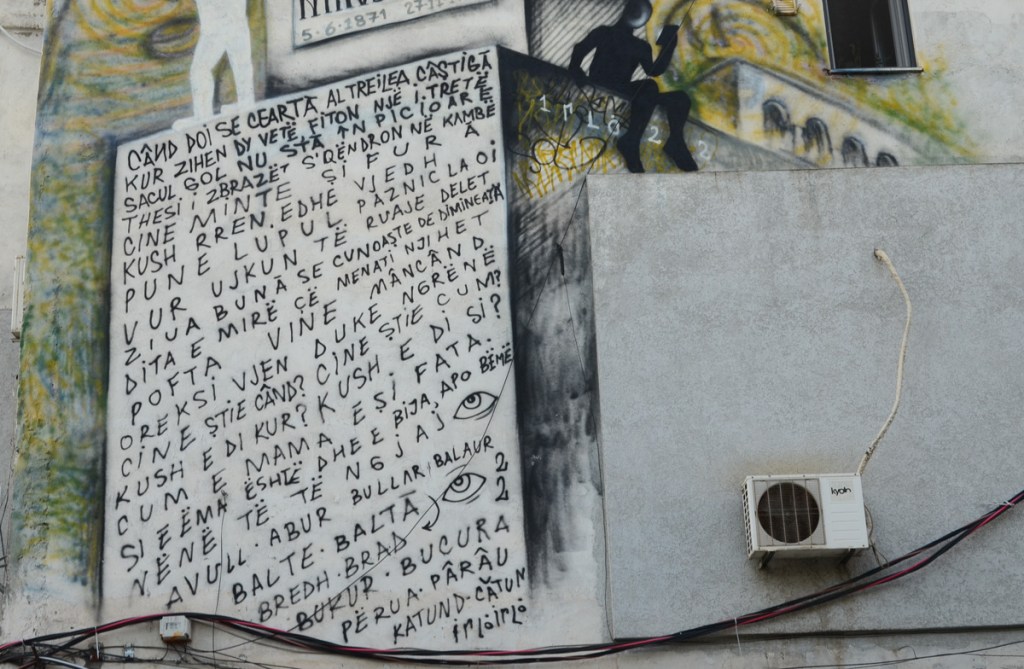 5.6.1871 27.11.
CÂND DOI SE CEARTĂ AL TREILEA CÂȘTIGĂ
KUR ZIHEN DY VETË FITON NJË I TRETË
SACUL GOL NU STĂ ÎN PICIOARE
THESI I ZBRAZËT S'QËNDRON NË KAMBË
CINE MINTE ȘI FURĂ
KUSH RREN. EDHE VJEDH
PUNE LUPUL PAZNIC LA OI
VUR UJKUN TË RUAJE DELET
ZIUA BUNĂ SE CUNOAȘTE DE DIMINEAȚĂ
DITA E MIRË ÇË MENATI NJIHET
POFTA VINE MÂNCÂND
OREKSI VJEN DUKE NGRËNË
CINE ȘTIE CÂND? CINE ȘTIE CUM?
KUSH E DI KUR? KUSH E DI SI?
CUM E MAMA E ȘI FATA.
SI E ËMA ËSHTË DHE E BIJA, APO BËMË
NËNË TË NGJAJ
AVULL. ABUR BULLAR, BALAUR
BALTE. BALTĂ 22
BREDH. BRAD
BUKUR. BUCURA
PËRUA. PÂRÂU
KATUND. CĂTUN
IRLOIRLO
1RLO 2 2 2
kyoto